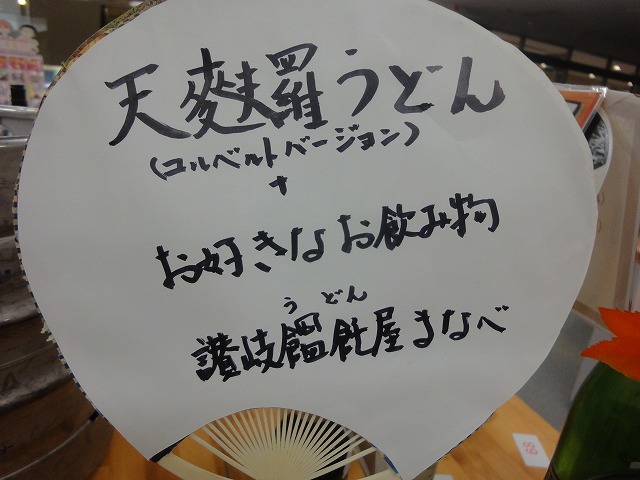 天麩羅うどん
(コルベルトバージョン)
+
お好きなお飲み物
うどん
讃岐饂飩屋まなべ
68